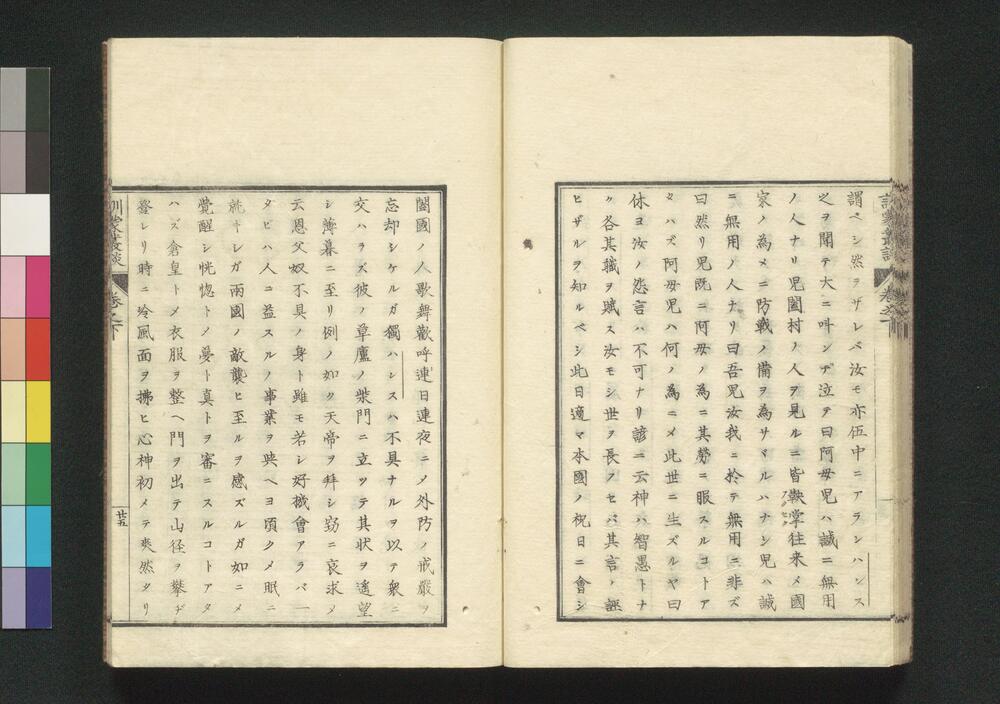 謂ベシ然ラザレバ汝モ亦伍中ニアランハンス
之ヲ聞テ大ニ叫ンデ泣テ曰阿母児ハ誠ニ無用
ノ人ナリ児闔村ノ人ヲ見ルニ皆鞅掌往来メ國
家ノ為メニ防戦ノ備ヲ為サヾルハナシ児ハ誠
ニ無用ノ人ナリ曰吾児汝我ニ於テ無用ニ非ズ
曰然リ児既ニ阿母ノ為ニ其労ニ服スルコトア
タハズ阿母児ハ何ノ為ニメ此世ニ生ズルヤ曰
休ヨ汝ノ怨言ハ不可ナリ諺ニ云神ハ智愚トナ
ク各其職ヲ賦ス汝モシ世ヲ長フセバ其言ノ誣
ヒザルヲ知ルベシ此日適マ本國ノ祝日ニ會シ
闔國ノ人歌舞歡呼連日連夜ニメ外防ノ戒嚴ヲ
忘却シケルガ獨ハンスハ不具ナルヲ以テ衆ニ
交ハラズ彼ノ草廬ノ柴門ニ立ツテ其状ヲ遙望
シ薄暮ニ至リ例ノ如ク天帝ヲ拜シ窃ニ哀求メ
云恩父奴不具ノ身ト雖モ若シ好機會アラバ一
タビハ人ニ益スルノ事業ヲ與ヘヨ頃クメ眠ニ
就キレガ兩國ノ敵襲ヒ至ルヲ感ズルガ如ニメ
覺醒シ恍惚トメ夢ト真トヲ審ニスルコトアタ
ハズ倉皇トメ衣服ヲ整ヘ門ヲ出テ山径ヲ攀ヂ
登レリ時ニ冷風面ヲ拂ヒ心神初メテ爽然タリ
訓蒙叢談
卷之下
廿五